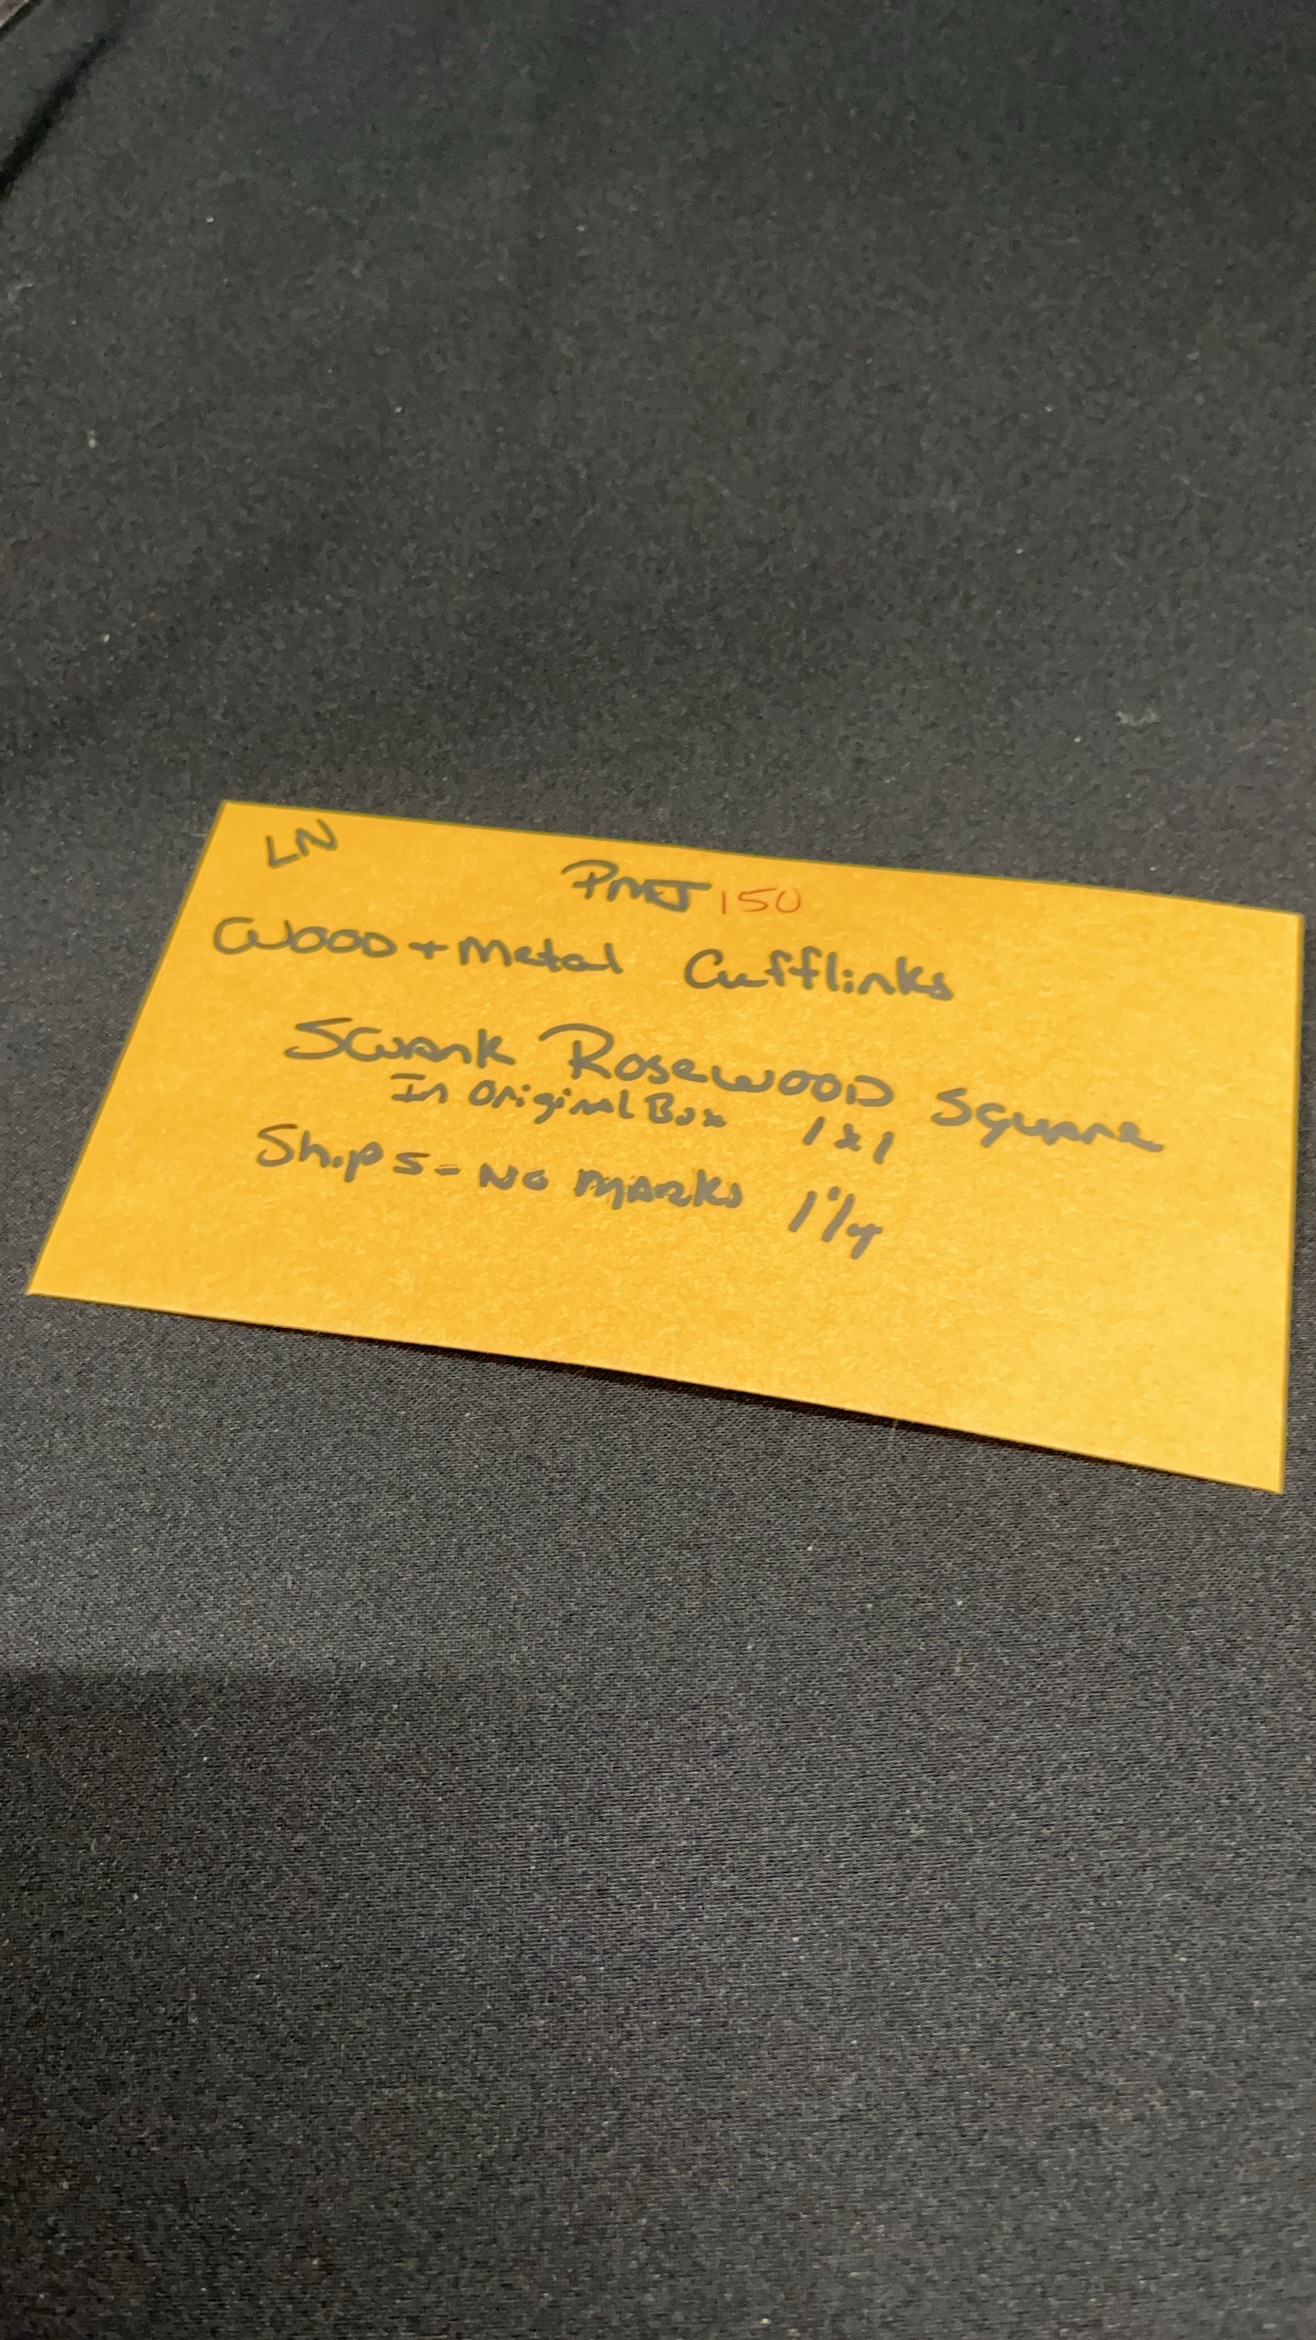 LN
PMEJ 150
WOOD + Metal Cufflinks
Swank Rosewood Square
In Original Box 1x1
Ships - No Marks 1 1/4